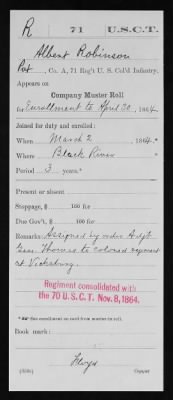 R 71 U.S.C.T.
Albert Robinson
Pvt, Co. A, 71 Reg't U. S. Col'd Infantry.
Appears on
Company Muster Roll
for Enrollment to April 30, 1864.
Joined for duty and enrolled:
When March 2 1864.*
Where Black River
Period 3 years.*
Present or absent
Stoppage, $ 100 for
Due Gov't, $ 100 for
Remarks: Assigned by order Adjt
Gen. Thomas to colored regiment
at Vicksburg.
Regiment consolidated with
the 70 U. S. C. T. Nov. 8, 1864.
*See enrollment on card from muster-in roll.
Book mark:
Copyist.